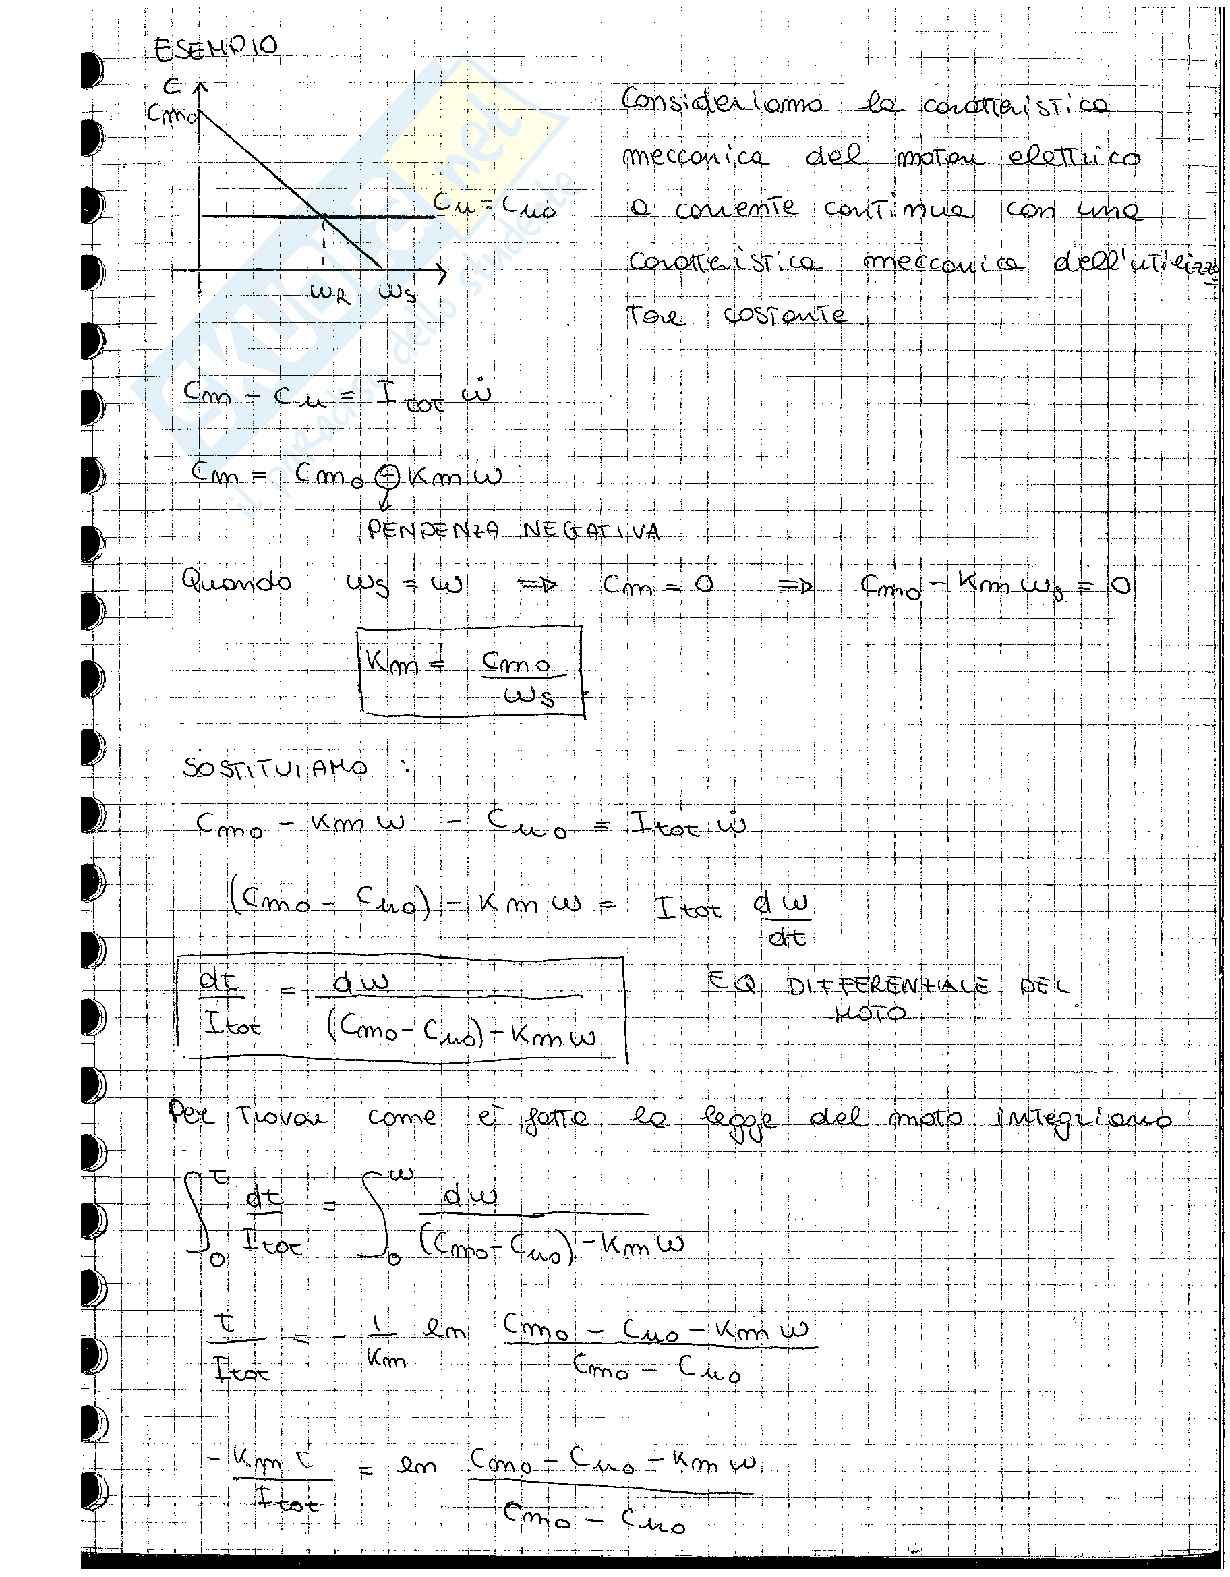 ESEMPIO
C
Cm0
Cu = Cu0
ωR ωS
Consideriamo la caratteristica
meccanica del motore elettrico
a corrente continua con una
caratteristica meccanica dell'utilizza
tore costante
Cm - Cu = Itot ω̇
Cm = Cm0 ⊖ Km ω
PENDENZA NEGATIVA
Quando ωS = ω ⇒ Cm = 0 ⇒ Cm0 - Km ωS = 0
Km = Cm0 / ωS
SOSTITUIAMO :
Cm0 - Km ω - Cu0 = Itot ω̇
(Cm0 - Cu0) - Km ω = Itot dω/dt
dt/Itot = dω / ((Cm0 - Cu0) - Km ω)
EQ DIFFERENZIALE DEL
MOTO
Per trovare come è fatta la legge del moto integriamo
∫₀ᵗ dt/Itot = ∫₀^ω dω / ((Cm0 - Cu0) - Km ω)
t/Itot = - 1/Km ln (Cm0 - Cu0 - Km ω) / (Cm0 - Cu0)
- Km t / Itot = ln (Cm0 - Cu0 - Km ω) / (Cm0 - Cu0)
SKUOLA.net